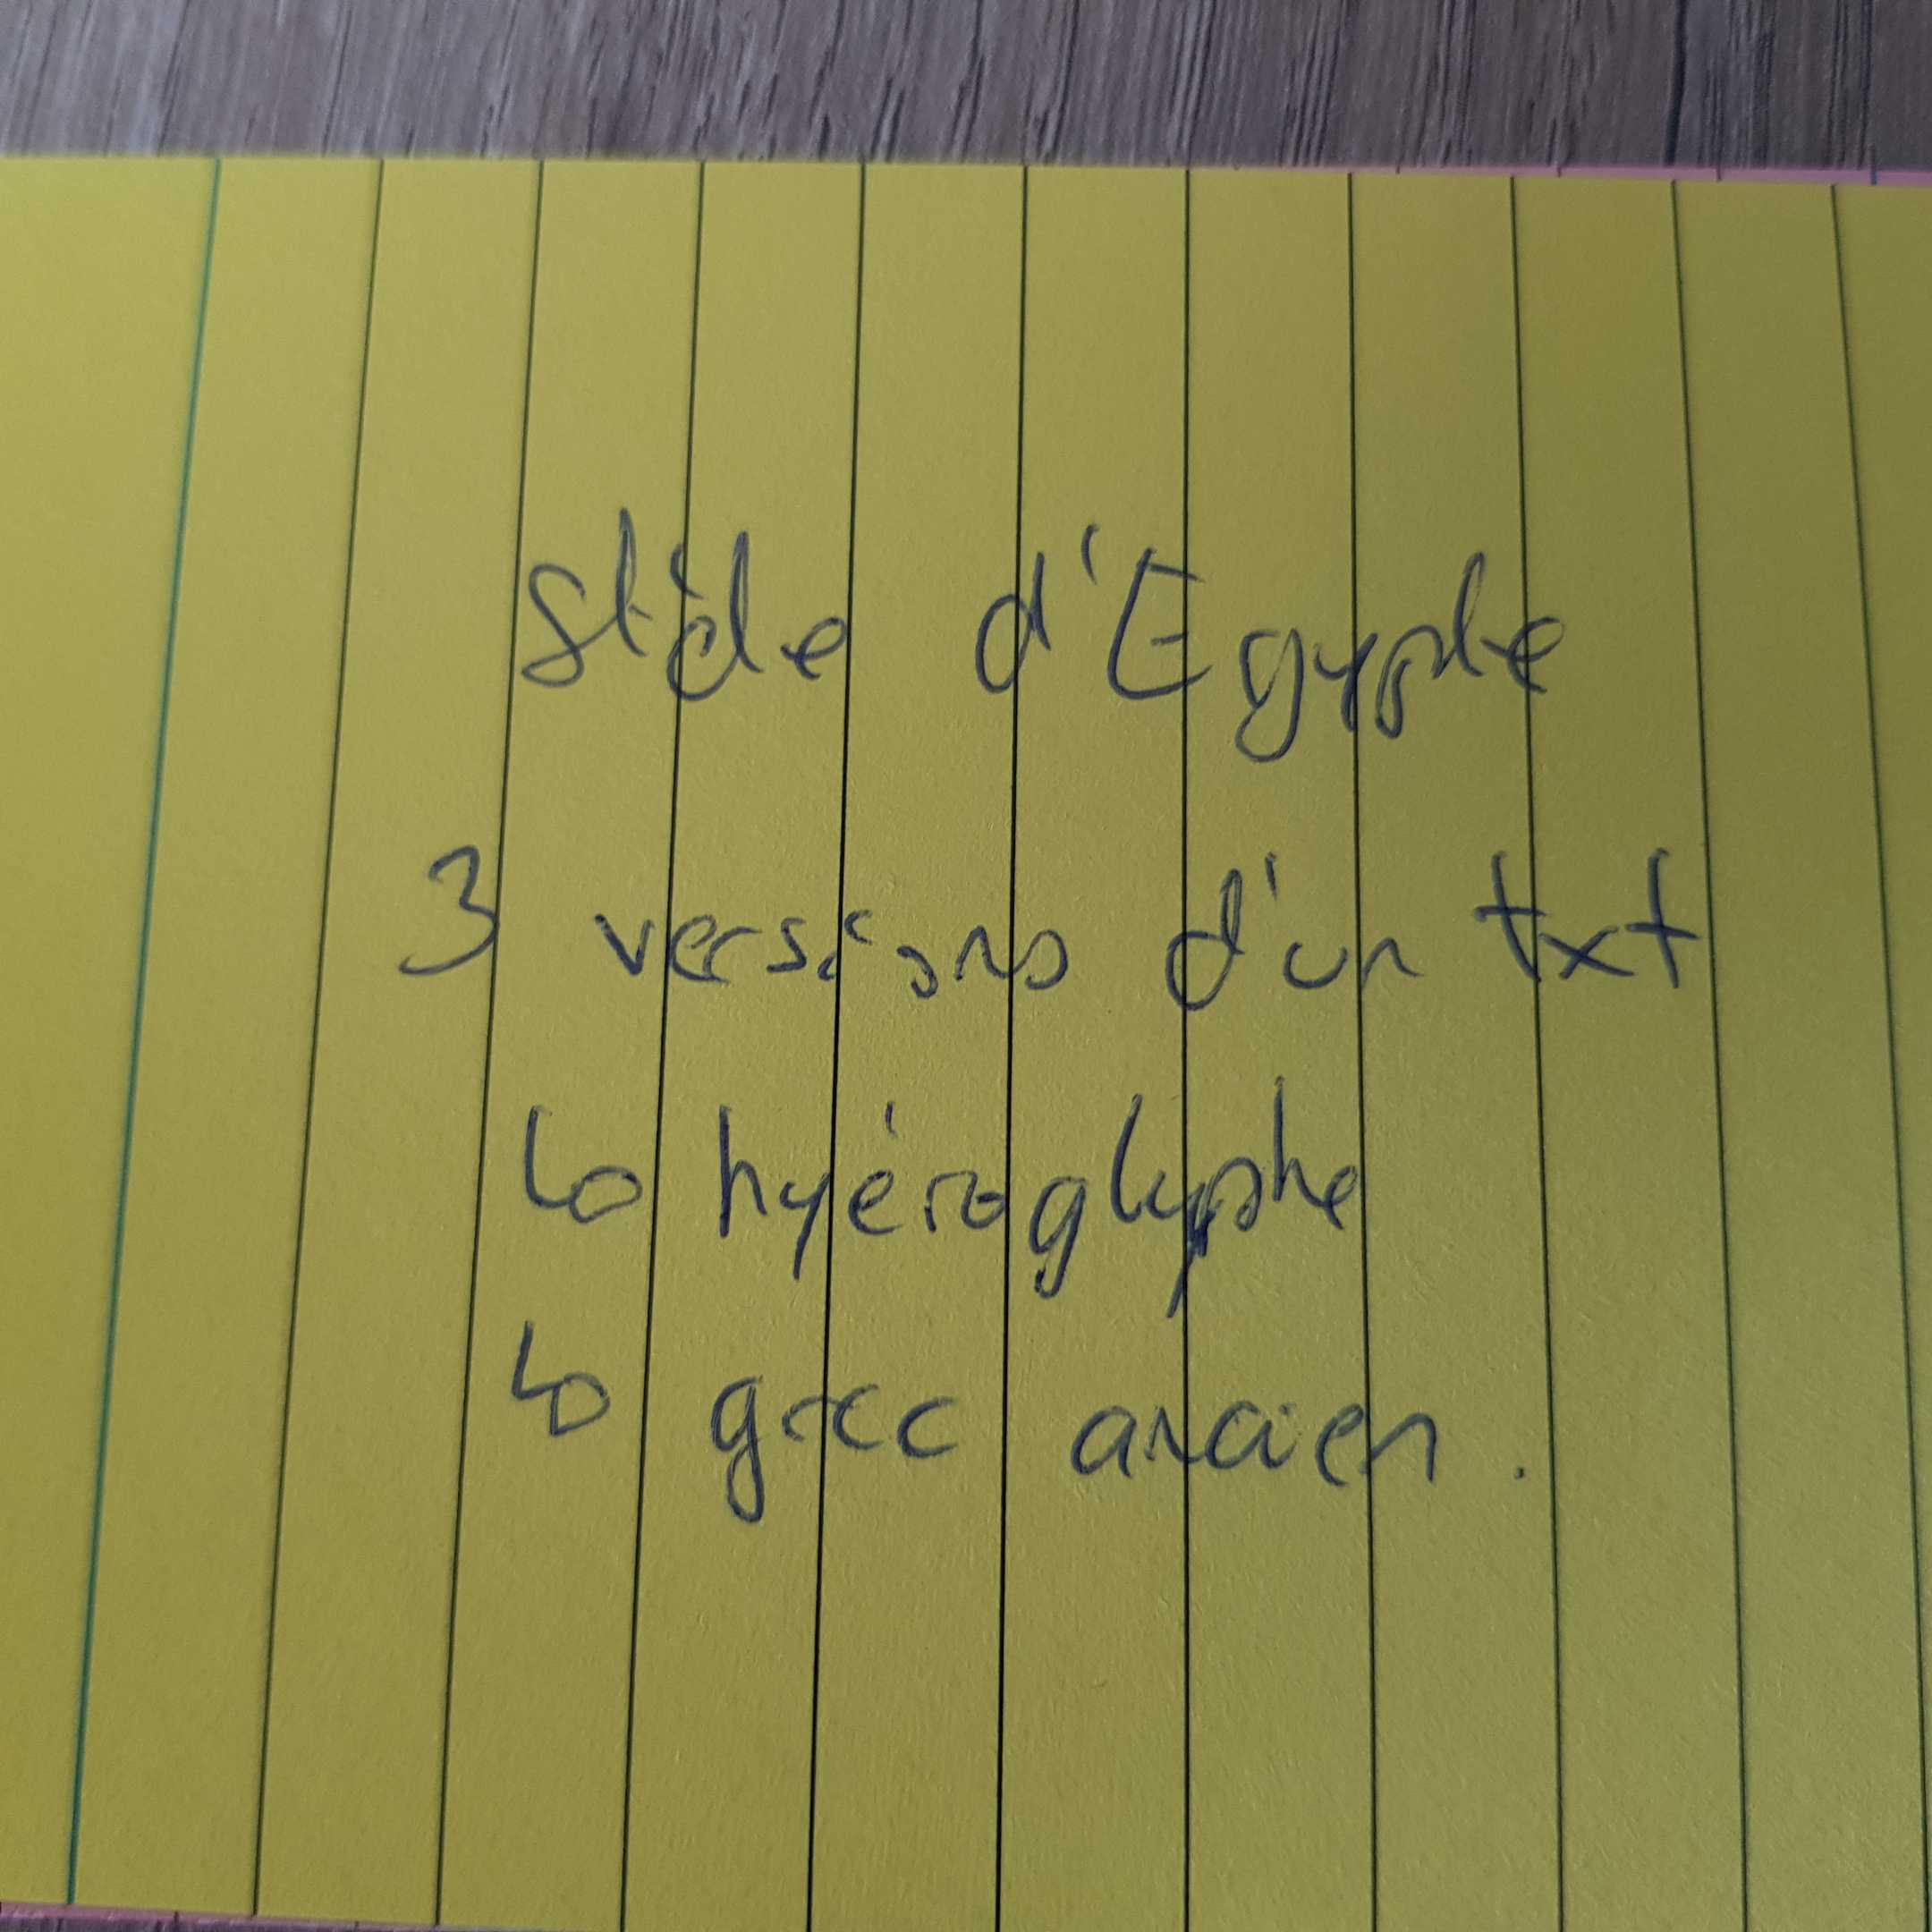 stèle d'Egypte
3 versions d'un txt
↳ hyéroglyphe
↳ grec ancien.